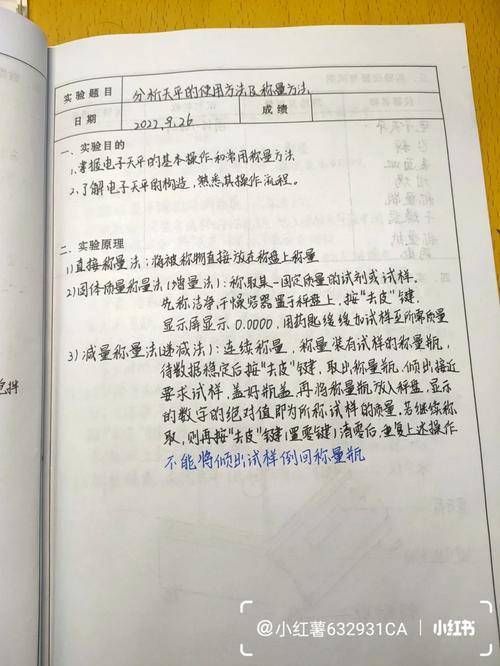 实验题目 分析天平的使用方法及称量方法
日期 2022.9.26 成绩
一、实验目的
1.掌握电子天平的基本操作和常用称量方法
2.了解电子天平的构造,熟悉其操作流程。
二、实验原理
1)直接称量法:将被称物直接放在称盘上称量
2)固体质量称量法(增量法):称取某一固定质量的试剂或试样.
先称洁净干燥容器置于秤盘上,按“去皮”键,
显示屏显示0.0000,用药匙缓缓加试样至所需质量
3)减量称量法(递减法):连续称量,称量装有试样的称量瓶,
待数据稳定后按“去皮”键,取出称量瓶,倾出接近
要求试样,盖好瓶盖,再将称量瓶放入秤盘,显示
的数字的绝对值即为所称试样的质量.若继续称
取,则再按“去皮”键(置零键)清零后,重复上述操作
不能将倾出试样倒回称量瓶
@小红薯632931CA 小红书